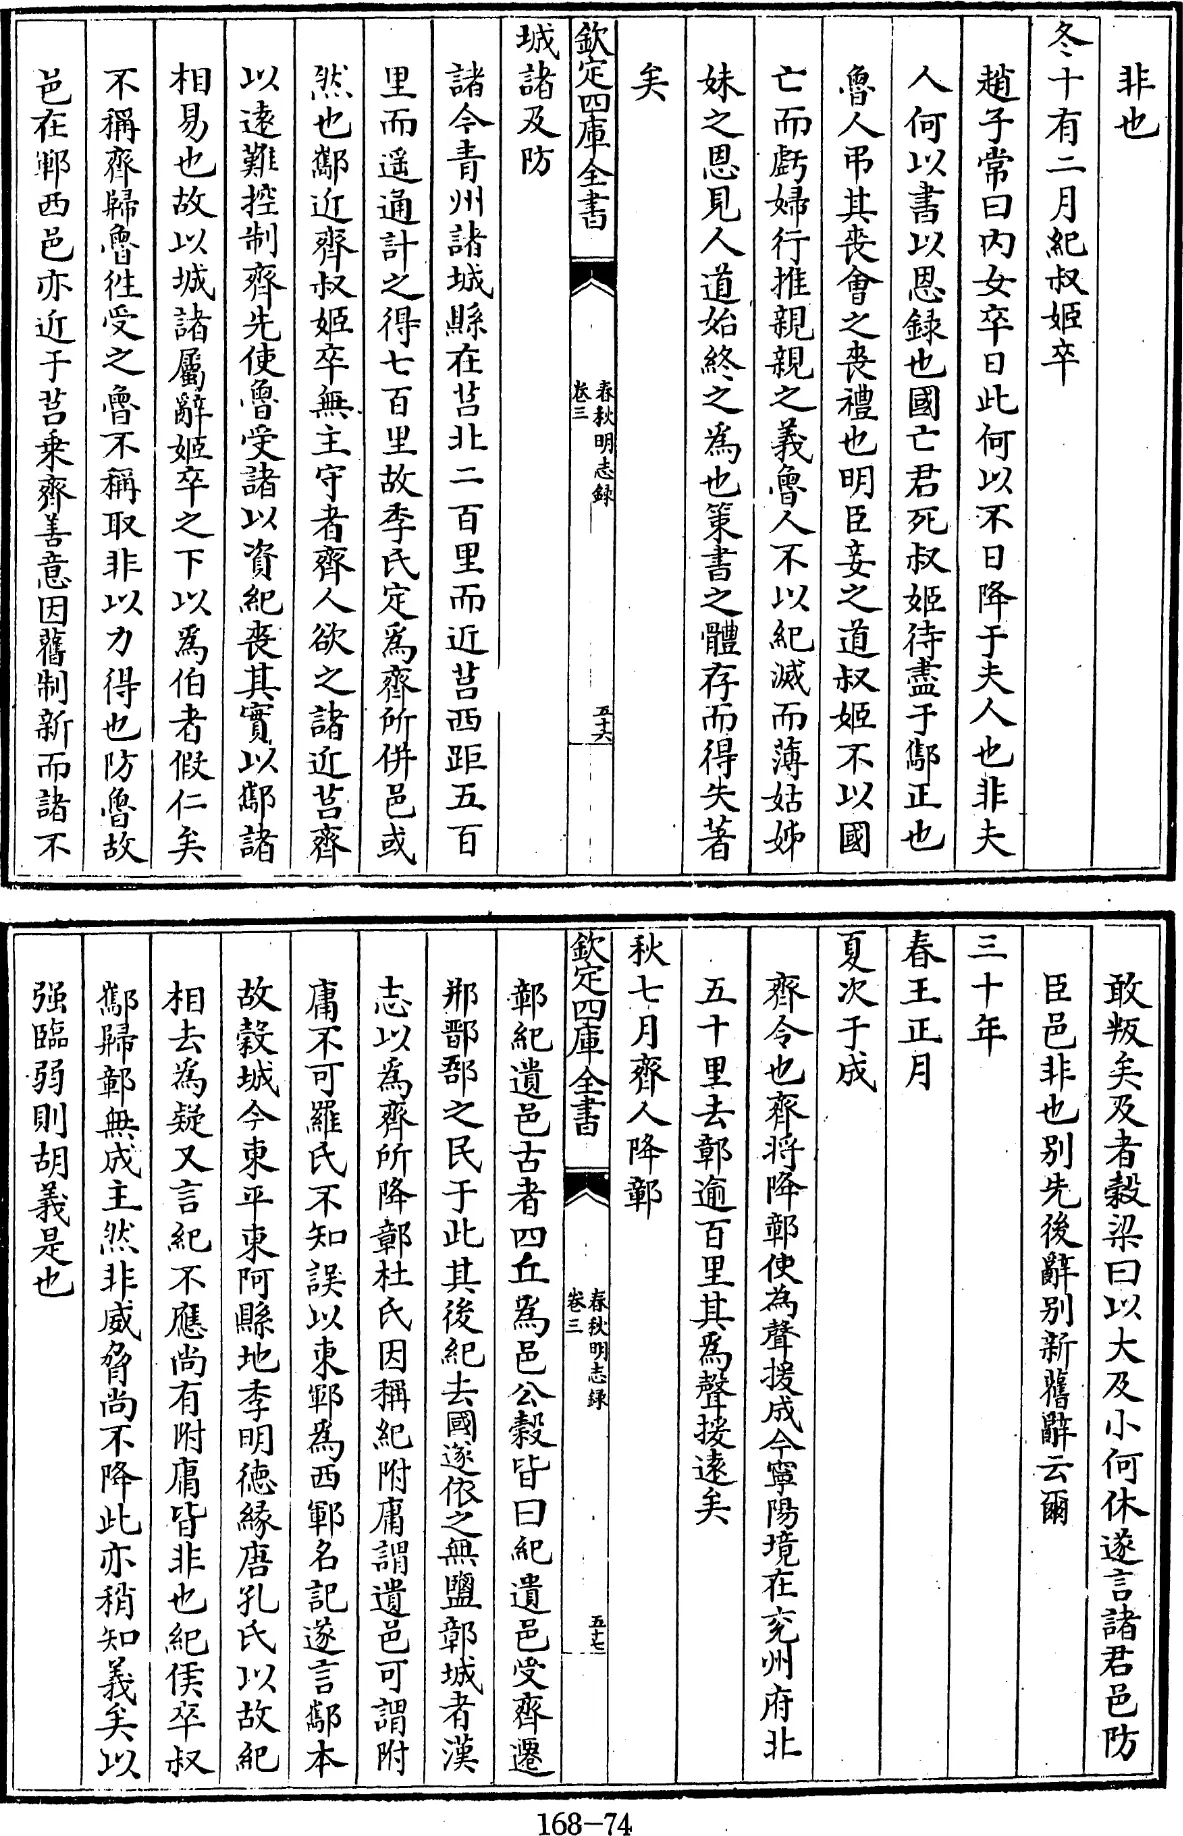 非也
冬十有二月紀叔姬卒
趙子常曰内女卒日此何以不日降于夫人也非夫
人何以書以恩録也國亡君死叔姬待盡于酅正也
魯人弔其喪會之喪禮也明臣妾之道叔姬不以國
亡而虧婦行推親親之義魯人不以紀滅而薄姑姊
妹之恩見人道始終之為也策書之體存而得失著
矣
欽定四庫全書
春秋明志録
卷三
五十六
城諸及防
諸今青州諸城縣在莒北二百里而近莒西距五百
里而遥通計之得七百里故季氏定爲齊所併邑或
然也酅近齊叔姬卒無主守者齊人欲之諸近莒齊
以遠難控制齊先使魯受諸以資紀喪其實以酅諸
相易也故以城諸屬辭姬卒之下以爲伯者假仁矣
不稱齊歸魯徃受之魯不稱取非以力得也防魯故
邑在鄆西邑亦近于莒乗齊善意因舊制新而諸不
敢叛矣及者穀梁曰以大及小何休遂言諸君邑防
臣邑非也别先後辭别新舊辭云爾
三十年
春王正月
夏次于成
齊令也齊将降鄣使為聲援成今寧陽境在兖州府北
五十里去鄣逾百里其爲聲援遠矣
秋七月齊人降鄣
欽定四庫全書
春秋明志録
卷三
五十七
鄣紀遺邑古者四丘爲邑公穀皆曰紀遺邑受齊遷
郱鄑郚之民于此其後紀去國遂依之無鹽鄣城者漢
志以爲齊所降鄣杜氏因稱紀附庸謂遺邑可謂附
庸不可羅氏不知誤以東鄆爲西鄆名記遂言酅本
故穀城今東平東阿縣地季明徳縁唐孔氏以故紀
相去爲疑又言紀不應尚有附庸皆非也紀侯卒叔
酅歸鄣無成主然非威脅尚不降此亦稍知義矣以
强臨弱則胡義是也
168-74